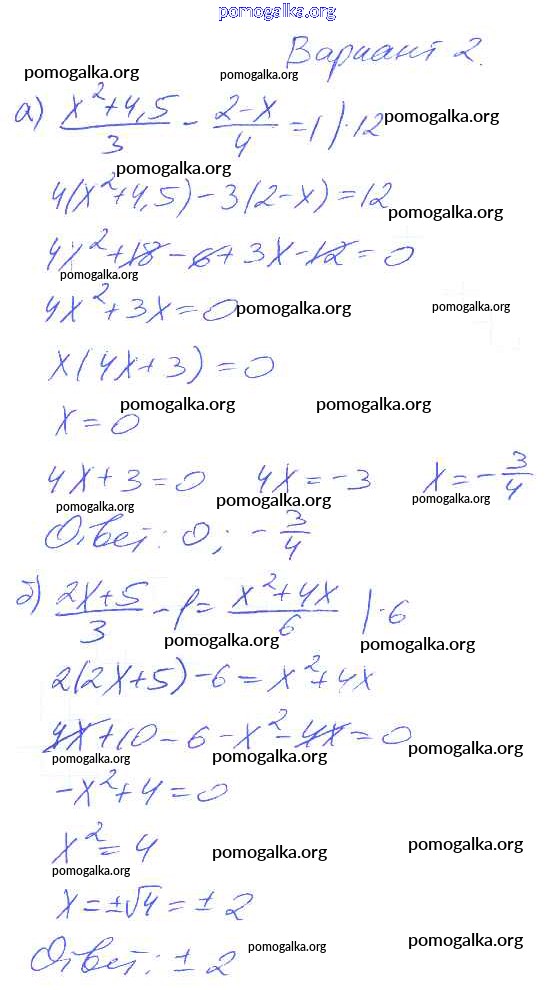 pomogalka.org
Вариант 2.
pomogalka.org pomogalka.org
а) (x²+4,5)/3 - (2-x)/4 = 1 |·12 pomogalka.org
pomogalka.org
4(x²+4,5)-3(2-x)=12
pomogalka.org
4x²+18-6+3x-12=0
pomogalka.org
4x²+3x=0 pomogalka.org pomogalka.org
x(4x+3)=0
pomogalka.org pomogalka.org
x=0
4x+3=0 4x=-3 x=-3/4
pomogalka.org pomogalka.org pomogalka.org
Ответ: 0; -3/4
б) (2x+5)/3 - 1 = (x²+4x)/6 |·6
pomogalka.org pomogalka.org
2(2x+5)-6=x²+4x
4x+10-6-x²-4x=0
pomogalka.org pomogalka.org pomogalka.org
-x²+4=0
x²=4
pomogalka.org pomogalka.org pomogalka.org
x=±√4=±2
Ответ: ±2
pomogalka.org pomogalka.org